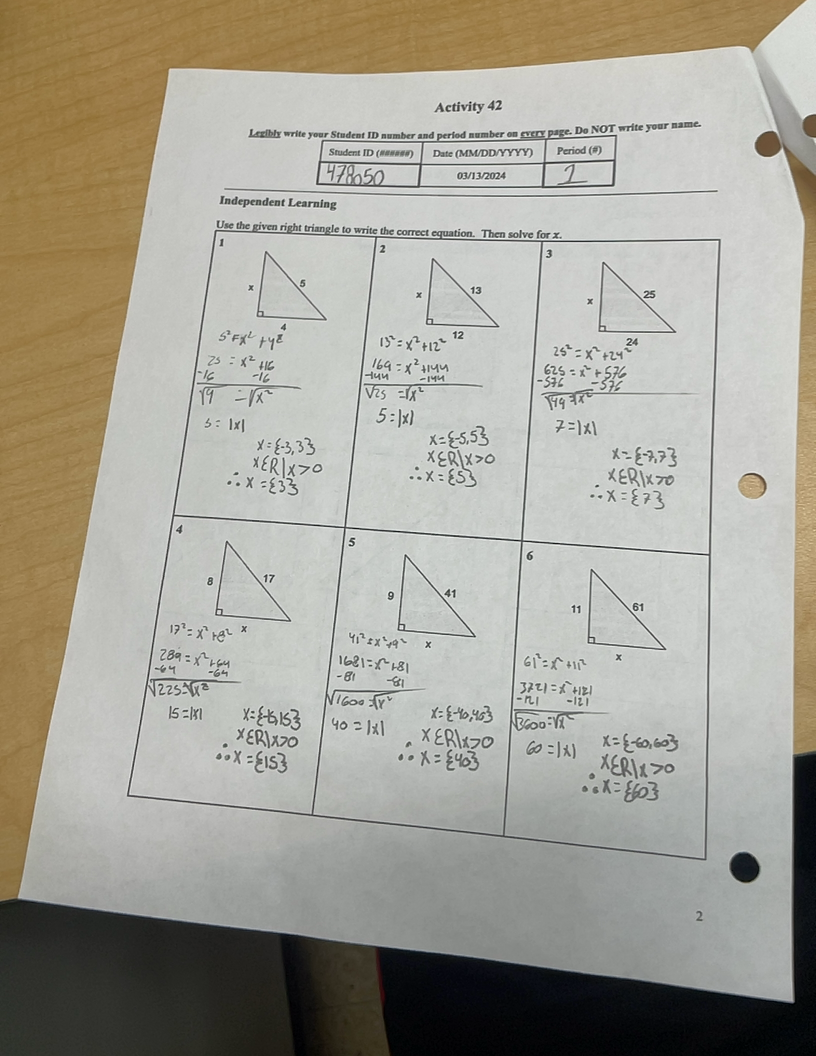 Activity 42
Legibly write your Student ID number and period number on every page. Do NOT write your name.
Student ID (######) Date (MM/DD/YYYY) Period (#)
478050 03/13/2024 1
Independent Learning
Use the given right triangle to write the correct equation. Then solve for x.
1
x 5
4
5² = x² + 4²
25 = x² + 16
-16 -16
√9 = √x²
3 = |x|
x = {-3,3}
xεR|x>0
∴ x = {3}
2
x 13
12
13² = x² + 12²
169 = x² + 144
-144 -144
√25 = √x²
5 = |x|
x = {-5,5}
xεR|x>0
∴ x = {5}
3
x 25
24
25² = x² + 24²
625 = x² + 576
-576 -576
√49 = √x²
7 = |x|
x = {-7,7}
xεR|x>0
∴ x = {7}
4
8 17
x
17² = x² + 8²
289 = x² + 64
-64 -64
√225 = √x²
15 = |x|
x = {-15,15}
xεR|x>0
∴ x = {15}
5
9 41
x
41² = x² + 9²
1681 = x² + 81
-81 -81
√1600 = √x²
40 = |x|
x = {-40,40}
xεR|x>0
∴ x = {40}
6
11 61
x
61² = x² + 11²
3721 = x² + 121
-121 -121
√3600 = √x²
60 = |x|
x = {-60,60}
xεR|x>0
∴ x = {60}
2